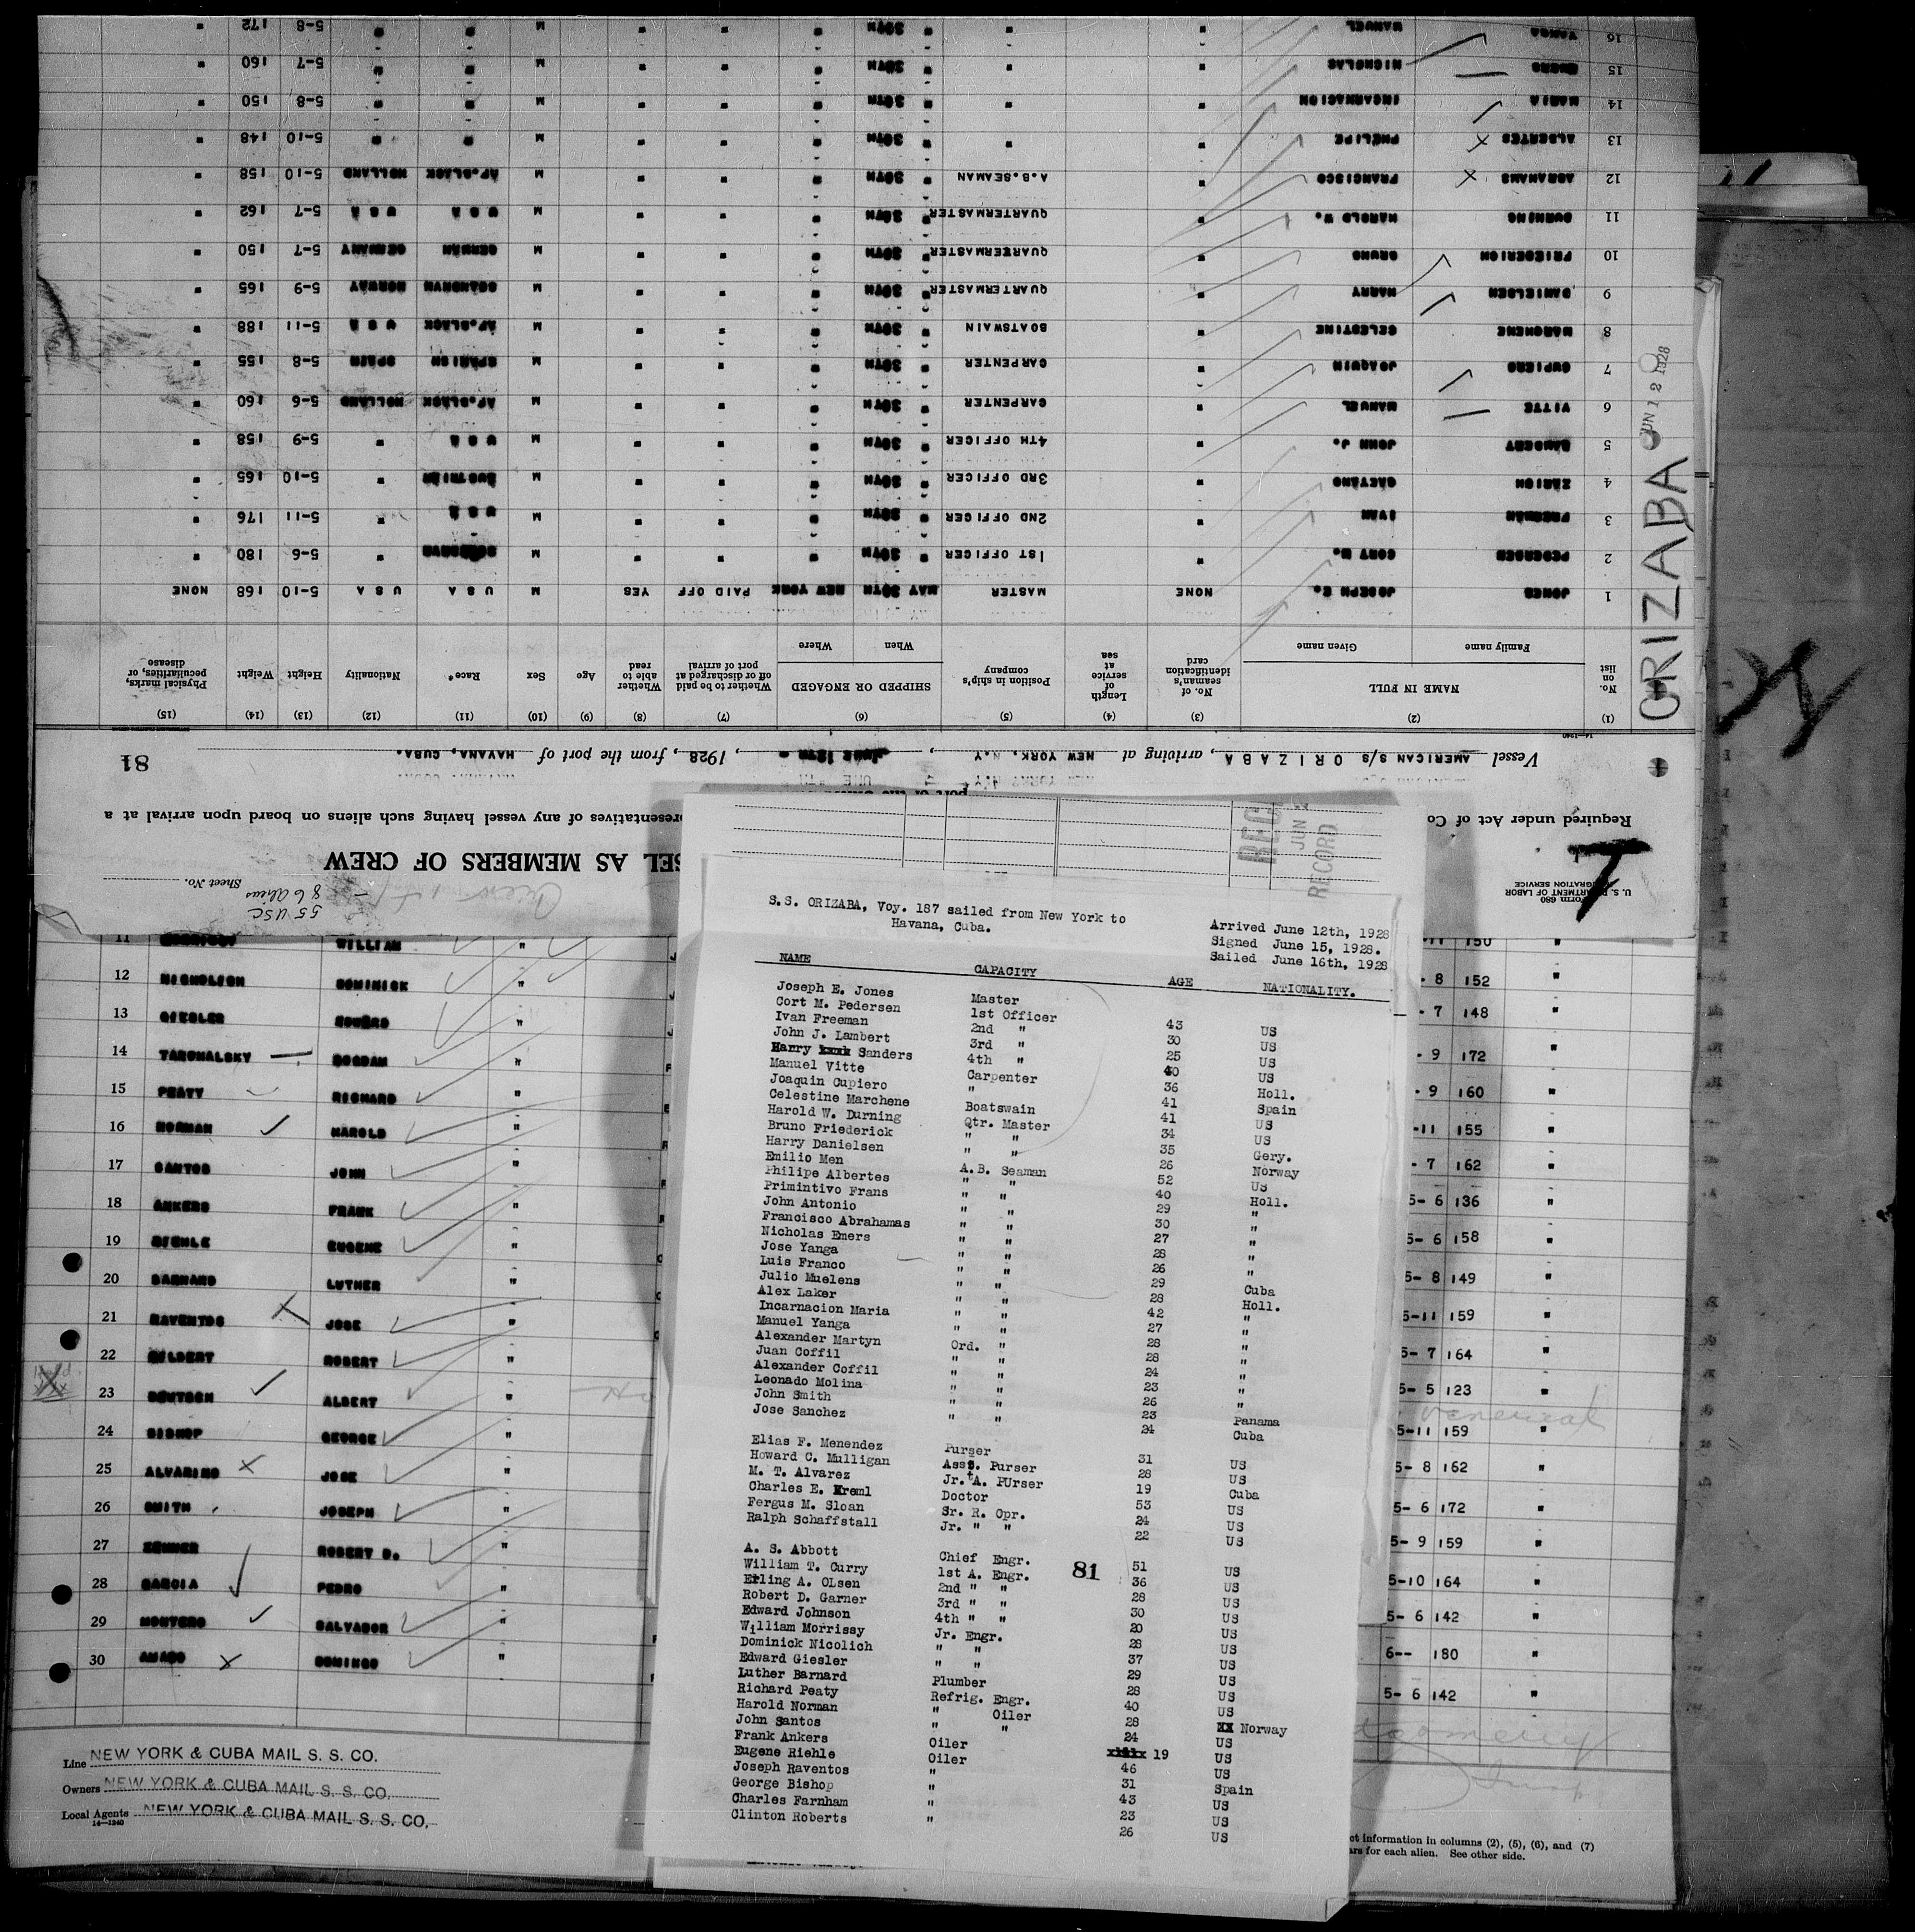 Form 680
U. S. DEPARTMENT OF LABOR
IMMIGRATION SERVICE
55 USC
86 Aliens
Sheet No.
SEL AS MEMBERS OF CREW
Required under Act of Co
presentatives of any vessel having such aliens on board upon arrival at a
Vessel AMERICAN S/S ORIZABA, arriving at NEW YORK, N.Y., JUNE 12TH, 1928, from the port of HAVANA, CUBA.
81
14-1240
ORIZABA
JUN 12 1928
(1) (2) (3) (4) (5) (6) (7) (8) (9) (10) (11) (12) (13) (14) (15)
No. on list NAME IN FULL No. of seaman's identification card Length of service at sea Position in ship's company SHIPPED OR ENGAGED Whether to be paid off or discharged at port of arrival Whether able to read Age Sex Race* Nationality Height Weight Physical marks, peculiarities, or disease
Family name Given name When Where
1 JONES JOSEPH E. NONE MASTER MAY 30TH NEW YORK PAID OFF YES M U S A U S A 5-10 168 NONE
2 PEDERSEN CORT M. " 1ST OFFICER " 30TH " " " M " 5-6 180 "
3 FREEMAN IVAN " 2ND OFFICER " 30TH " " " M U S A " 5-11 176 "
4 ZARICH GAETANO " 3RD OFFICER " 30TH " " " M AUSTRIAN " 5-10 165 "
5 LAMBERT JOHN J. " 4TH OFFICER " 30TH " " " M U S A " 5-9 158 "
6 VITTE MANUEL " CARPENTER " 30TH " " " M AF.BLACK HOLLAND 5-6 160 "
7 CUPIERO JOAQUIN " CARPENTER " 30TH " " " M SPANISH SPAIN 5-8 155 "
8 MARCHENE CELESTINE " BOATSWAIN " 30TH " " " M AF.BLACK U S A 5-11 188 "
9 DANIELSEN HARRY " QUARTERMASTER " 30TH " " " M SCANDNAN NORWAY 5-9 165 "
10 FRIEDERICH BRUNO " QUARTERMASTER " 30TH " " " M GERMAN GERMANY 5-7 150 "
11 DURNING HAROLD W. " QUARTERMASTER " 30TH " " " M U S A U S A 5-7 162 "
12 ABRAHAMS FRANCISCO " A.B.SEAMAN " 30TH " " " M AF.BLACK HOLLAND 5-10 158 "
13 ALBERTES PHELIPE " " " 30TH " " " M " " 5-10 148 "
14 MARIA INCARNACION " " " 30TH " " " M " " 5-8 150 "
15 EMERS NICHOLAS " " " 30TH " " " M " " 5-7 160 "
16 YANGA MANUEL " " " 30TH " " " M " " 5-8 172 "
11 WILLIAM " 150 "
12 NICHOLICH DOMINICK " 8 152 "
13 GIESLER EDWARD " 7 148 "
14 TAROHALSKY BOGDAN " 9 172 "
15 PEATY RICHARD " 9 160 "
16 NORMAN HAROLD " -11 155 "
17 SANTOS JOHN " 7 162 "
18 ANKERS FRANK " 5-6 136 "
19 RIEHLE EUGENE " 5-6 158 "
20 BARNARD LUTHER " 5-8 149 "
21 RAVENTOS JOSE " 5-11 159 "
22 HILDERT ROBERT " 5-7 164 "
23 ALBERT " 5-5 123 "
24 BISHOP GEORGE " 5-11 159 "
25 ALVARINO JOSE " 5-8 162 "
26 SMITH JOSEPH " 5-6 172 "
27 ROBERT D. " 5-9 159 "
28 GARCIA PEDRO " 5-10 164 "
29 MONTERO SALVADOR " 5-6 142 "
30 AMADO DOMINGO " 6-- 180 "
5-6 142 "
venereal
Line NEW YORK & CUBA MAIL S. S. CO.
Owners NEW YORK & CUBA MAIL S. S. CO.
Local Agents NEW YORK & CUBA MAIL S. S. CO.
14-1240
ct information in columns (2), (5), (6), and (7)
ars for each alien. See other side.
REC
JUN
RECORD
S.S. ORIZABA, Voy. 187 sailed from New York to
Havana, Cuba.
Arrived June 12th, 1928
Signed June 15, 1928.
Sailed June 16th, 1928
NAME CAPACITY AGE NATIONALITY.
Joseph E. Jones Master
Cort M. Pedersen 1st Officer 43 US
Ivan Freeman 2nd " 30 US
John J. Lambert 3rd " 25 US
Harry xxxx Sanders 4th " 40 US
Manuel Vitte Carpenter 36 Holl.
Joaquin Cupiero " 41 Spain
Celestine Marchene Boatswain 41 US
Harold W. Durning Qtr. Master 34 US
Bruno Friederick " " 35 Gery.
Harry Danielsen " " 26 Norway
Emilio Men A.B. Seaman 52 US
Philipe Albertes " " 40 Holl.
Primintivo Frans " " 29 "
John Antonio " " 30 "
Francisco Abrahamas " " 27 "
Nicholas Emers " " 28 "
Jose Yanga " " 26 "
Luis Franco " " 29 Cuba
Julio Muelens " " 28 Holl.
Alex Laker " " 42 "
Incarnacion Maria " " 27 "
Manuel Yanga " " 28 "
Alexander Martyn Ord. " 28 "
Juan Coffil " " 24 "
Alexander Coffil " " 23 "
Leonado Molina " " 26 "
John Smith " " 23 Panama
Jose Sanchez " " 24 Cuba
Elias F. Menendez Purser 31 US
Howard C. Mulligan Asst. Purser 28 US
M. T. Alvarez Jr. A. PUrser 19 Cuba
Charles E. Kreml Doctor 53 US
Fergus M. Sloan Sr. R. Opr. 24 US
Ralph Schaffstall Jr. " " 22 US
A. S. Abbott Chief Engr. 51 US
81
William T. Curry 1st A. Engr. 36 US
Erling A. OLsen 2nd " " 28 US
Robert D. Garner 3rd " " 30 US
Edward Johnson 4th " " 20 US
William Morrissy Jr. Engr. 28 US
Dominick Nicolich " " 37 US
Edward Giesler " " 29 US
Luther Barnard Plumber 28 US
Richard Peaty Refrig. Engr. 40 US
Harold Norman " Oiler 28 XX Norway
John Santos " " 24 US
Frank Ankers Oiler 19 US
Eugene Riehle Oiler 46 US
Joseph Raventos " 31 Spain
George Bishop " 43 US
Charles Farnham " 23 US
Clinton Roberts " 26 US